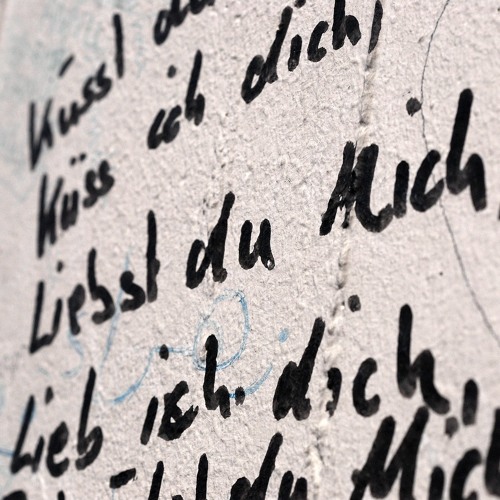 Küsst du
Küss ich dich,
Liebst du Mich,
Lieb ich dich,
du Mich